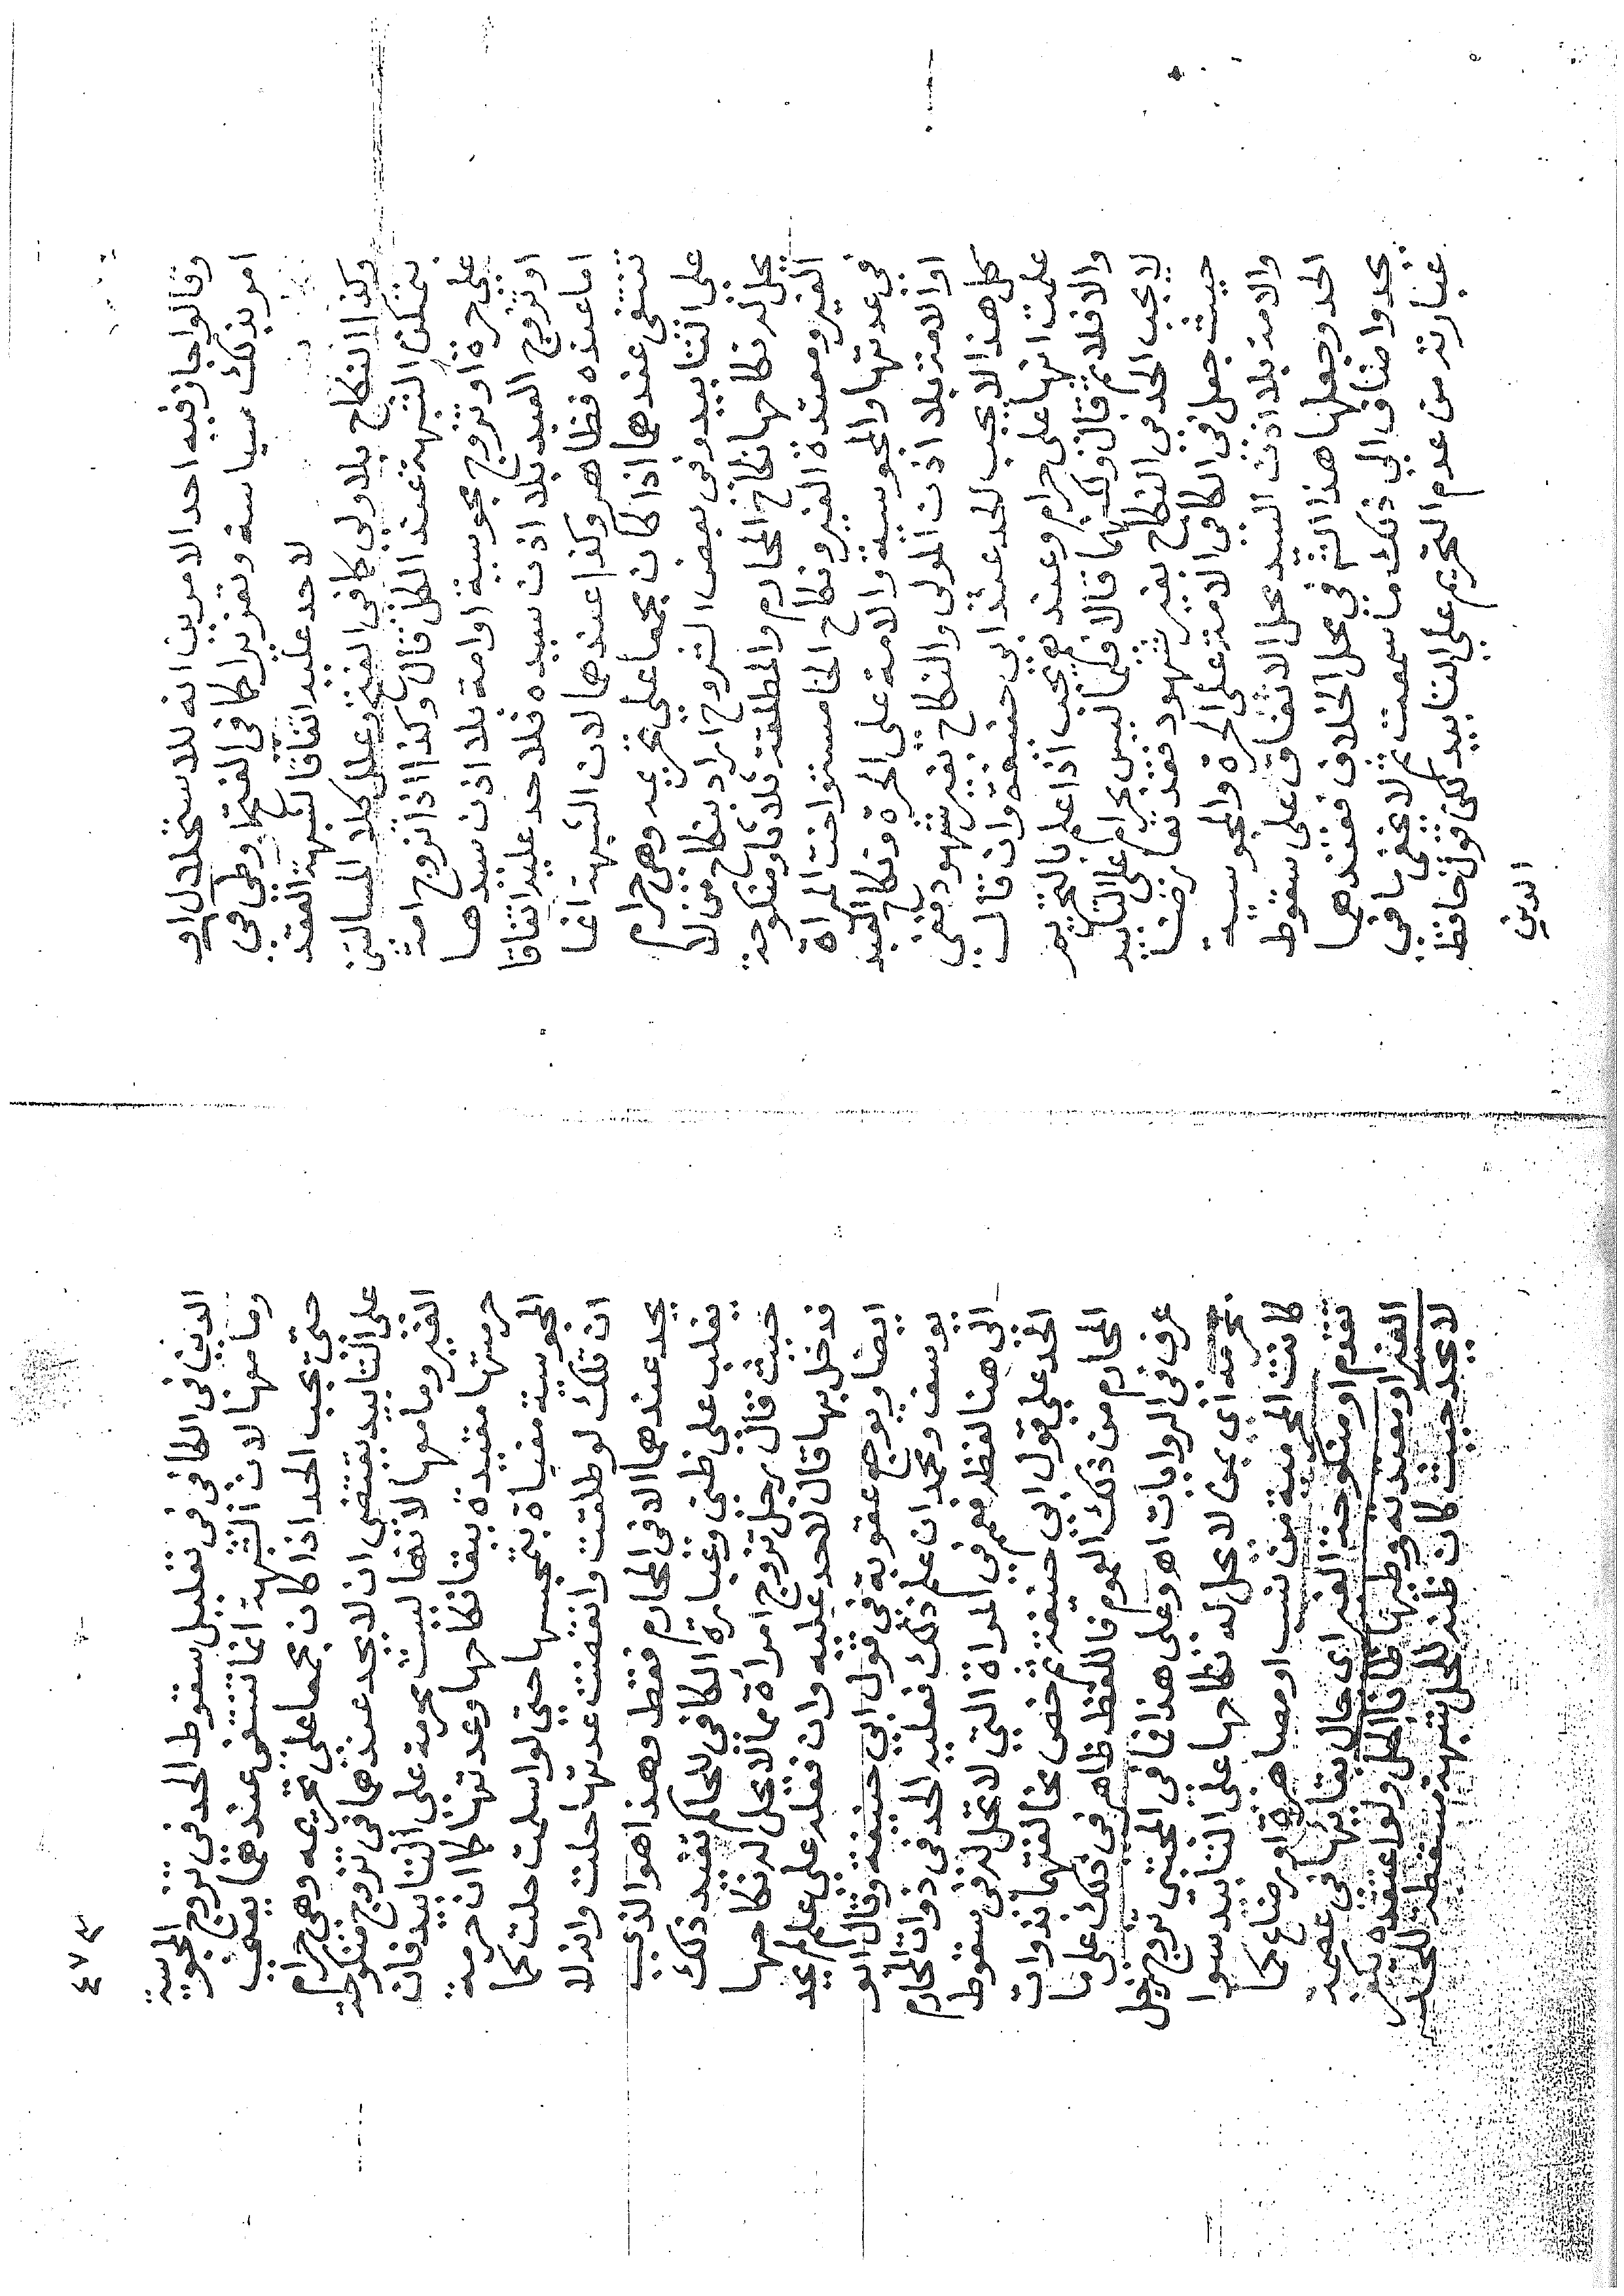 وقالوا جاز فيه احد الامرين انه للاستحلال او
امر بذلك سياسة وتعزيرا كافي الفتح اوطئ في
لا حد عليه اتفاقا لشبهة العقد
وكذا النكاح بلا ولي كافي الفتح وعلل كلا المسالتين
بتمكن الشبهة عند الكل قال وكذا اذا تزوج امة
على حرة او تزوج مجوسية او امة بلا اذن سيدها
او تزوج العبد بلا اذن سيده فلا حد عليه اتفاقا
اما عنده فظاهر وكذا عندهما لان الشبهة انما
تنتفي عندهما اذا كان مجمعا على تحريمه وهي حرام
على التابيد وفي بعض الشروح اراد بنكاح من لا
يحل له نكاحها نكاح المحارم والمطلقة ثلاثا ومنكوحة
الغير ومعتدة الغير ونكاح الخامسة واخت المراة
في عدتها والمجوسية والامة على الحرة ونكاح العبد
او الامة بلا اذن المولى والنكاح بغير شهود ففي
كل هذا لا يجب الحد عند ابي حنيفة وان قال
علمت انها على حرام وعندهما يجب اذا علم بالتحريم
والا فلا ثم قال ولكنهما قالا فيما ليس بحرام على التابيد
لا يجب الحد في النكاح بغير شهود فقد تعارضتا
حيث جعل في الكافي الامة على الحرة والمجوسية
والامة بلا اذن السيد محل الاتفاق على سقوط
الحد وجعلها هذا في محل الخلاف فعندهما
يحد واضاف الى ذلك ما سمعت ثم لا يخفى ما في
عبارته من عدم التحريم على التابيد لكن قول حافظ
الدين
٤٧٣
الدين في الكافي في تعليل سقوط الحد في تزوج المجوسية
وما معها لان الشبهة انما تنتفي عندهما يعني
حتى يجب الحد اذا كان مجمعا على تحريمه وهي حرام
على التابيد يقتضي ان لا يحد عندهما في تزوج منكوحة
الغير وما معها لانها ليست محرمة على التابيد فان
حرمتها مقيدة ببقا نكاحها وعدتها كما ان حرمة
المجوسية مغياة بتمجسها حتى لو اسلمت حلت كما
ان تلك لو طلقت وانقضت عدتها حلت وانه لا
يحد عندهما الا في المحارم فقط وهذا هو الذي
يغلب على ظني وعبارة الكافي للحاكم تفيد ذلك
حيث قال رجل تزوج امراة ممن لا يحل له نكاحها
فدخل بها قال لا حد عليه وان فعله على علم لم يحد
ايضا ويوجع عقوبة في قول ابي حنيفة وقال ابو
يوسف ومحمد ان علم ذلك فعليه الحد في ذوات المحارم
الى هنا لفظه فعمم في المراة التي لا تحل له في سقوط
الحد على قول ابي حنيفة ثم خص مخالفتهما بذوات
المحارم من ذلك العموم فاللفظ ظاهر في ذلك على ما
عرف في الروايات اهـ وعلى هذا فما في المجتبى تزوج رجل
بمحرمه اي بمن لا يحل له نكاحها على التابيد سوا
كانت الحرمية من نسب او مصاهرة او رضاع كما
تقدم او منكوحة الغير اي حال بقائها في عصمة
الغير او معتدته ووطئها ظانا الحل ولو اعتقده يكفر
لا يحد حيث كان ظنه للحل شبهة مسقطة للحد